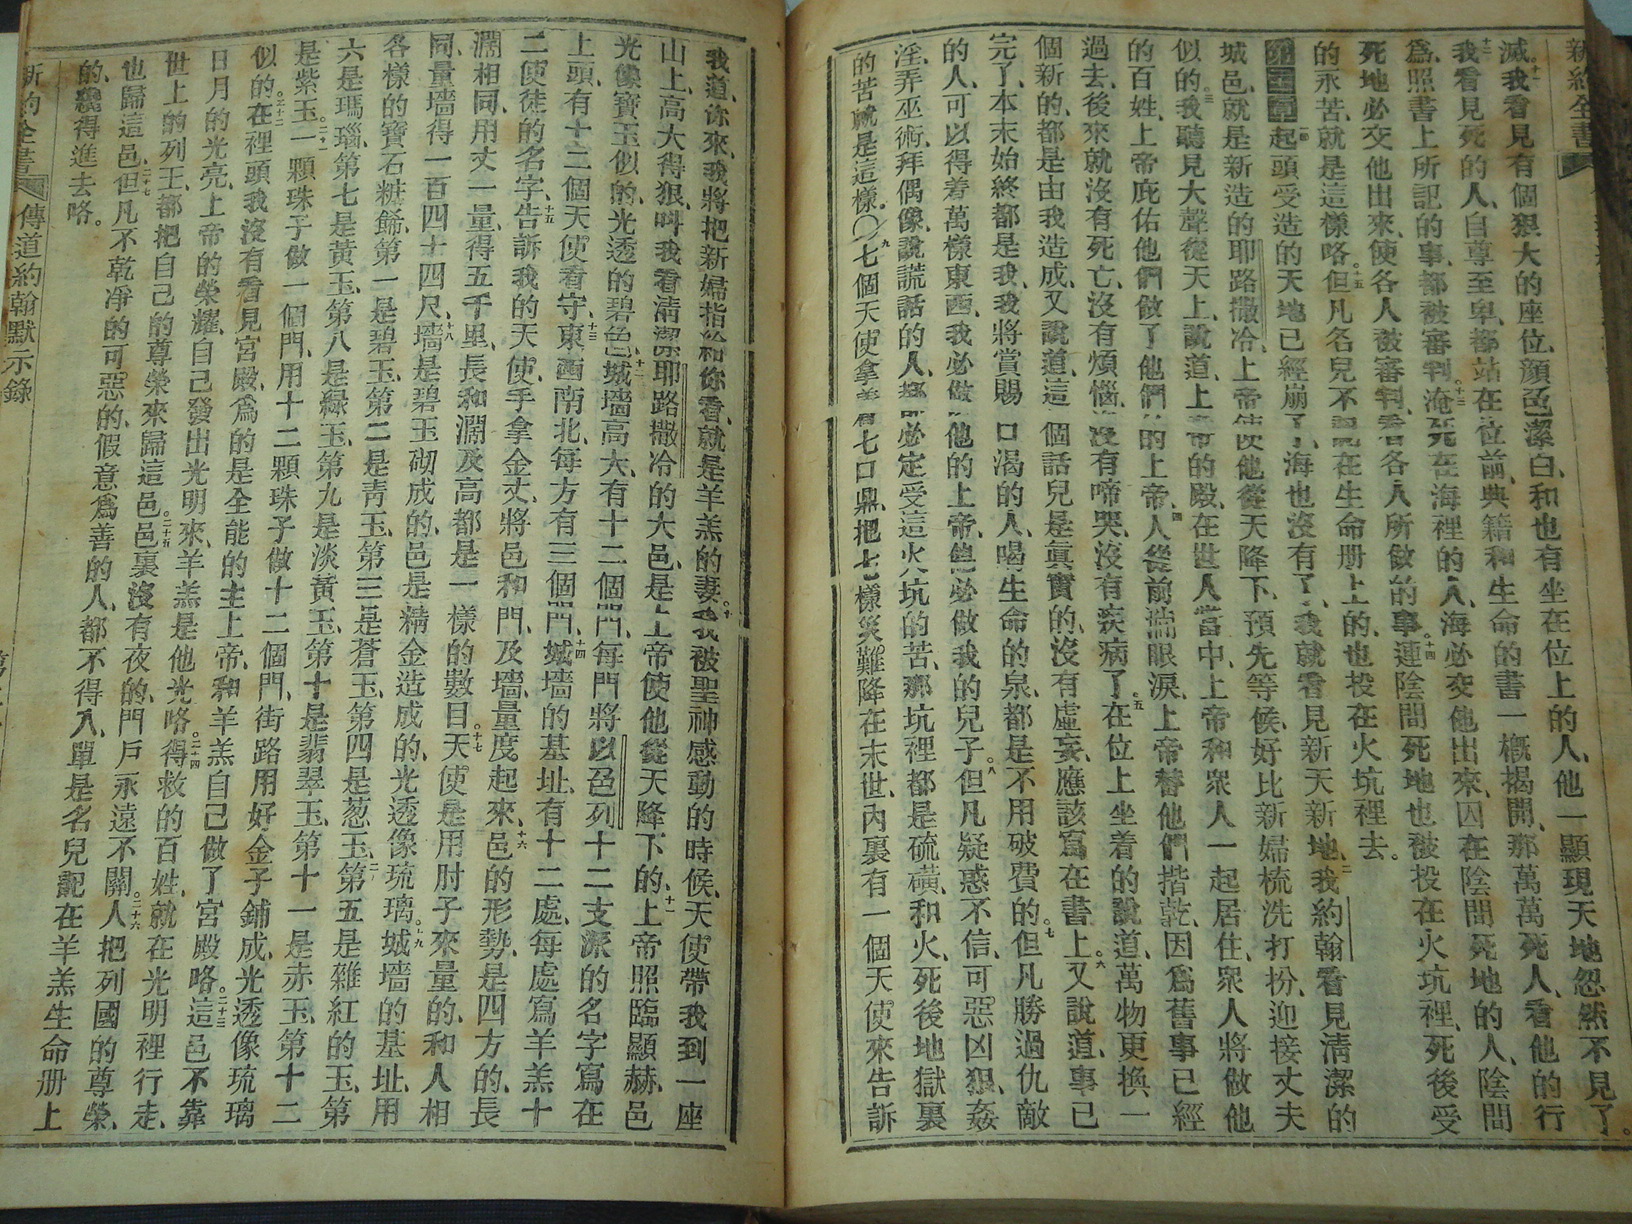 新約全書
滅、我看見有個狠大的座位、顏色潔白、和也有坐在位上的人、他一顯現天地忽然不見了。
十二我看見死的人、自尊至卑、都站在位前、典籍和生命的書一概揭開、那萬萬死人、看他的行
爲、照書上所記的事、都被審判。十三淹死在海裡的人、海必交他出來、因在陰間死地的人、陰間
死地必交他出來、使各人被審判、看各人所做的事。十四連陰間死地也被投在火坑裡、死後受
的永苦、就是這樣略。十五但凡名兒不記在生命册上的、也投在火坑裡去。
起頭受造的天地已經崩了、海也沒有了、我就看見新天新地、二我約翰看見淸潔的
城邑、就是新造的耶路撒冷、上帝使他從天降下、預先等候、好比新婦梳洗打扮、迎接丈夫
似的。三我聽見大聲從天上、說道、上帝的殿、在世人當中、上帝和眾人一起居住、眾人將做他
的百姓、上帝庇佑他們、做了他們的上帝、四人從前湍眼淚、上帝替他們揩乾、因爲舊事已經
過去、後來就沒有死亡、沒有煩惱、沒有啼哭、沒有疾病了。五在位上坐着的說道、萬物更換一
個新的、都是由我造成、又說道、這個話兒是眞實的、沒有虛妄、應該寫在書上。六又說道、事已
完了、本末始終都是我、我將賞賜口渴的人、喝生命的泉、都是不用破費的。七但凡勝過仇敵
的人、可以得着萬樣東西、我必做他的上帝、他必做我的兒子。八但凡疑惑不信、可惡凶狠、姦
淫、弄巫術、拜偶像、說謊話的人、都必定受這火坑的苦、那坑裡都是硫磺、和火、死後地獄裏
的苦就是這樣。〇九七個天使拿着七口鼎、把七樣災難降在末世、內裏有一個天使來告訴
我道、你來、我將把新婦指給你看、就是羊羔的妻。十我被聖神感動的時候、天使帶我到一座
山上、高大得狠、叫我看淸潔耶路撒冷的大邑、是上帝使他從天降下的、十一上帝照臨顯赫、邑
光像寶玉似的、光透的碧色、十二城墻高大、有十二個門、每門將以色列十二支派的名字寫在
上頭、有十二個天使看守、十三東西南北、每方有三個門、十四城墻的基址、有十二處、每處寫羊羔十
二使徒的名字、十五告訴我的天使、手拿金丈、將邑和門、及墻、量度起來、十六邑的形勢、是四方的、長
濶相同、用丈一量、得五千里、長和濶及高都是一樣的數目。十七天使是用肘子來量的、和人相
同、量墻得一百四十四尺、十八墻是碧玉砌成的、邑是精金造成的、光透像琉璃。十九城墻的基址、用
各樣的寶石粧飾、第一是碧玉、第二是青玉、第三是蒼玉、第四是葱玉、二十第五是雜紅的玉、第
六是瑪瑙、第七是黃玉、第八是綠玉、第九是淡黃玉、第十是翡翠玉、第十一是赤玉、第十二
是紫玉。二十一一顆珠子做一個門、用十二顆珠子做十二個門、街路用好金子鋪成、光透像琉璃
似的。二十二在裡頭我沒有看見宮殿、爲的是全能的主上帝、和羊羔自己做了宮殿略。二十三這邑不靠
日月的光亮、上帝的榮耀、自己發出光明來、羊羔是他光略。二十四得救的百姓、就在光明裡行走、
世上的列王、都把自己的尊榮來歸這邑。二十五邑裏沒有夜的、門戶永遠不關。二十六人把列國的尊榮、
也歸這邑、二十七但凡不乾凈的、可惡的、假意爲善的人、都不得入、單是名兒記在羊羔生命册上
的、纔得進去咯。
新約全書 傳道約翰默示錄